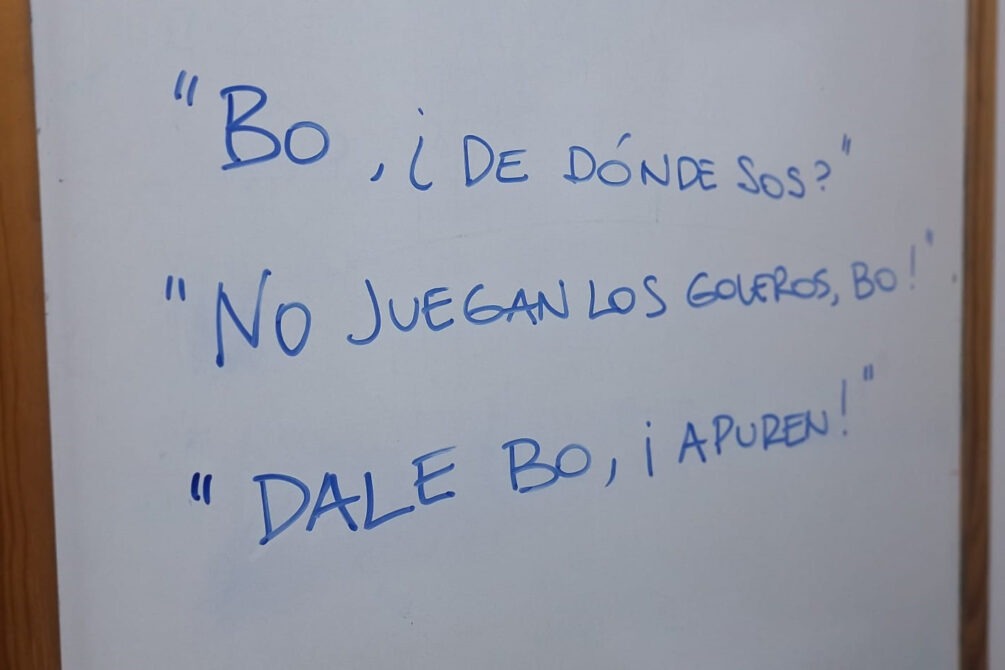 "BO, ¿DE DÓNDE SOS?"
"NO JUEGAN LOS GOLEROS, BO!"
"DALE BO, ¡APUREN!"